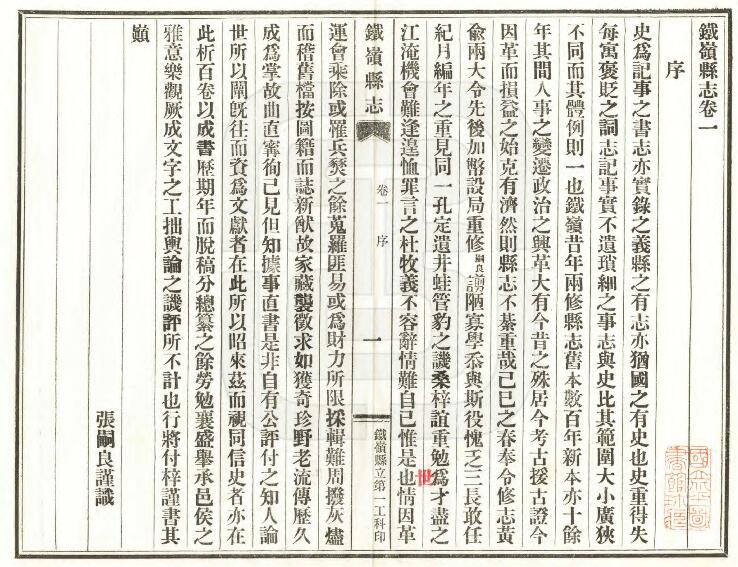 鐵嶺縣志卷一
序
史爲記事之書志亦實錄之義縣之有志亦猶國之有史也史重得失
每寓褒貶之詞志記事實不遺瑣細之事志與史比其範圍大小廣狹
不同而其體例則一也鐵嶺昔年兩修縣志舊本數百年新本亦十餘
年其間人事之變遷政治之興革大有今昔之殊居今考古援古證今
因革而損益之始克有濟然則縣志不綦重哉己巳之春奉令修志黃
俞兩大令先後加幣設局重修嗣良謭陋寡學忝與斯役愧乏三長敢任
紀月編年之重見同一孔定遺井蛙管豹之譏桑梓誼重勉爲才盡之
江淹機會難逢遑恤罪言之杜牧義不容辭情難自已惟是也情因革
世
鐵嶺縣志
卷一 序
一
鐵嶺縣立第一工科印
運會乘除或罹兵燹之餘蒐羅匪易或爲財力所限採輯難周撥灰燼
而稽舊檔按圖籍而誌新猷故家藏襲徵求如獲奇珍野老流傳歷久
成爲掌故曲直寗徇己見但知據事直書是非自有公評付之知人論
世所以闡旣往而資爲文獻者在此所以昭來茲而視同信史者亦在
此析百卷以成書歷期年而脫稿分總纂之餘勞勉襄盛舉承邑侯之
雅意樂觀厥成文字之工拙輿論之譏評所不計也行將付梓謹書其
顚
張嗣良謹識